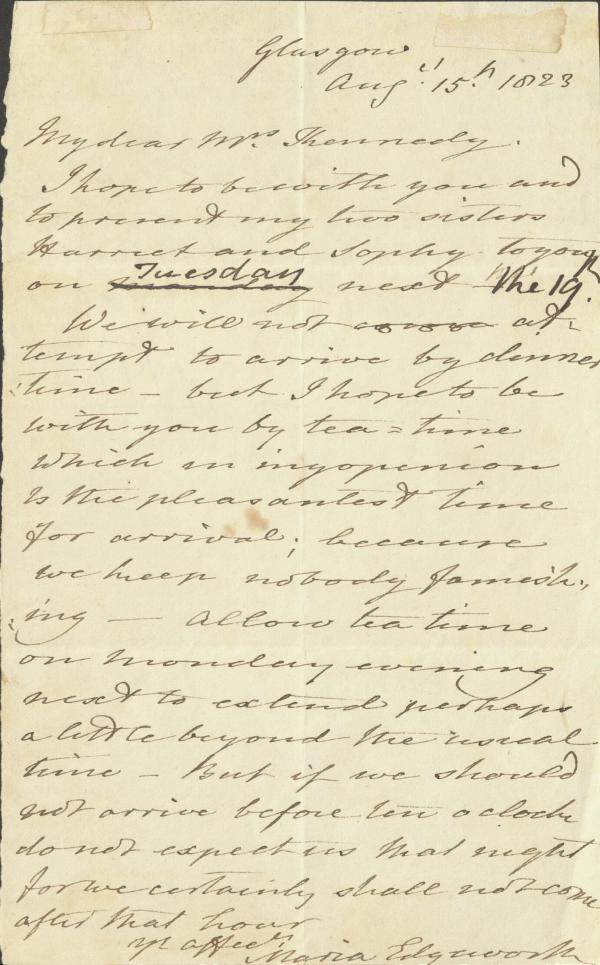 Glasgow
Augst 15th 1823
My dear Mrs. Kennedy.
I hope to be with you and
to present my two sisters
Harriet and Sophy to you
on monday Tuesday next the 19th
We will not come at=
tempt to arrive by dinner
=time – but I hope to be
with you by tea=time
which in my opinion
is the pleasantest time
for arrival; because
we keep nobody famish=
=ing — Allow tea time
on monday evening
next to extend perhaps
a little beyond the usual
time – But if we should
not arrive before ten o clock
do not expect us that night
for we certainly shall not come
after that hour
yr. affecte
Maria Edgeworth